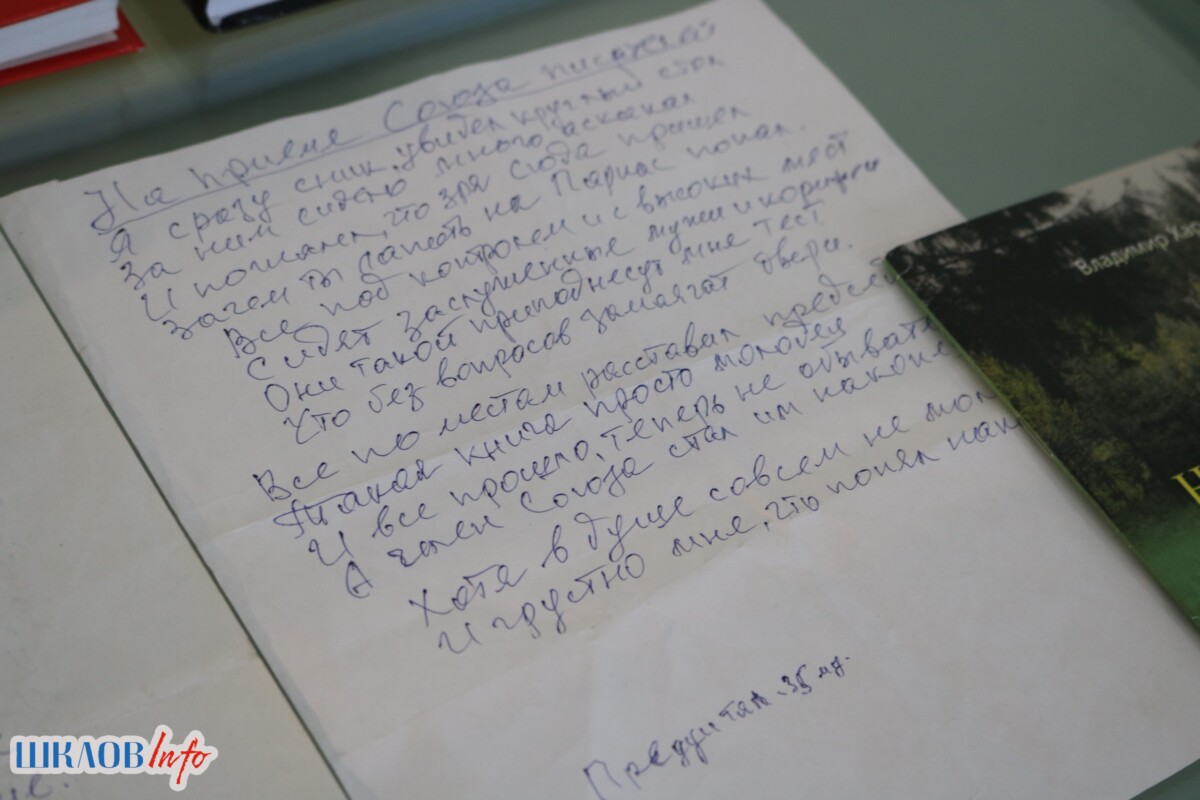 На приеме Союза писателей
Я сразу сник, увидел круглый стол
За ним сидело много аскакал
И понял, что зря сюда пришел
Зачем ты лапоть на Парнас попал.
Все под контролем и с высоких мест
Сидят заслуженные мужи и корифеи
Они такой преподнесут мне тест
Что без вопросов
двери.
Все по местам расставил
Такая книга просто молодец
И все прошло, теперь не обывате
А член Союза стал им наконе
Хотя в душе совсем не мол
И грустно мне, что понял
Владимир
ШКЛОВ Info